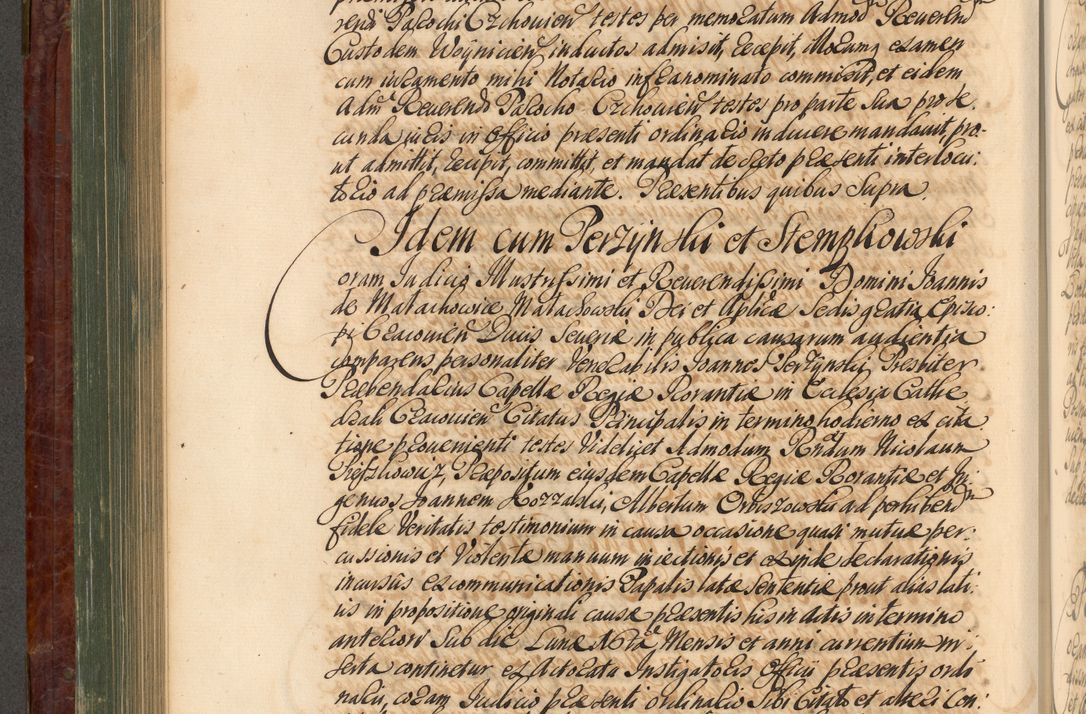 rendi Parochi Czchoviensis testes per memoratum Admodum Reverend
Custodem Woynicien inductos admisit, recepit, illorumq examen
cum iuramento mihi Notario infranominato commisit, et eidem
Adm Reverendo Parocho Czchovien testes pro parte sua prose,
cunda iuris in Officio præsenti ordinario inducere mandavit, pro-
ut admittit, recipit, committit, et mandat decreto præsenti interlocu:
torio ad præmissa mediante. Præsentibus quibus supra.
Idem cum Perzynski et Stempkowski
Coram Judicio Illustrissimi et Reverendissimi Domini Joannis
de Małachowice Małachowski Dei et Aplicæ Sedis gratia Episco:
pi Cracovien Ducis Severiæ in publica causarum audientia
comparens personaliter Venerabilis Joannes Perzynski Presbiter
Præbendarius Capellæ Regiæ Rorantiæ in Ecclesia Cathe
drali Cracovien Citatus Principalis in termino hodierno ex cita
tione provenienti testes videlicet Admodum Rndum Nicolaum
Præpositum eiusdem Capellæ Regiæ Rorantiæ et In
genuos Joannem Albertum ad perhibend
fidele veritatis testimonium in causa occasione quasi mutuæ per:
cussionis et violentæ manuum iniectionis et exinde declarationis
incursûs excommunicationis Papalis latæ sententiæ prout alias lati:
us in propositione originali causæ præsentis his in actis in termino
anteriori sub die Lunæ 16ta Mensis et anni currentium in:
serta continetur ex Actorata Instigatoris Officii præsentis ordi
narii, coram Judicio præsenti ordinario sibi Citato et alteri Con: